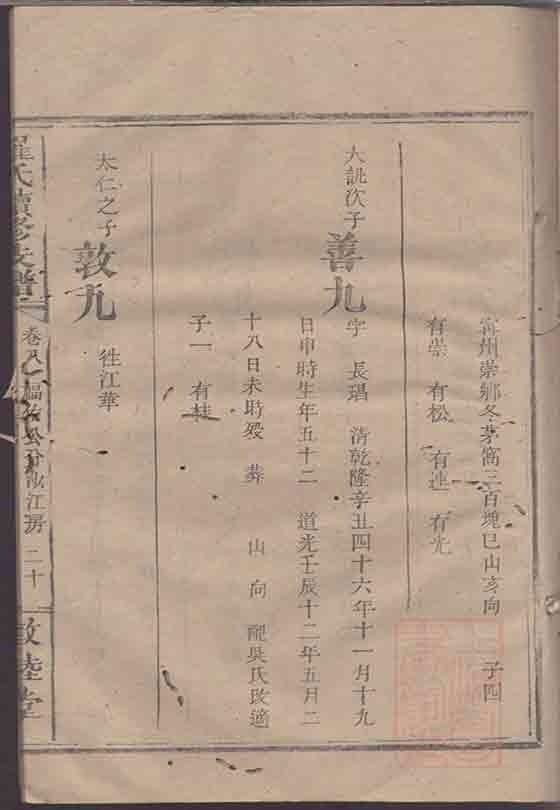 甯州崇鄉冬茅窩三百塊巳山亥向 子四
有崇 有松 有連 有光
大詋次子 善九 字 長瑒 清乾隆辛丑四十六年十一月十九
日申時生年五十二 道光壬辰十二年五月二
十八日未時歿 葬 山 向 配吳氏改適
子一 有桂
太仁之子 敦九 徃江華
羅氏續修支譜 卷八 福 公分 江房 二十 敦睦堂